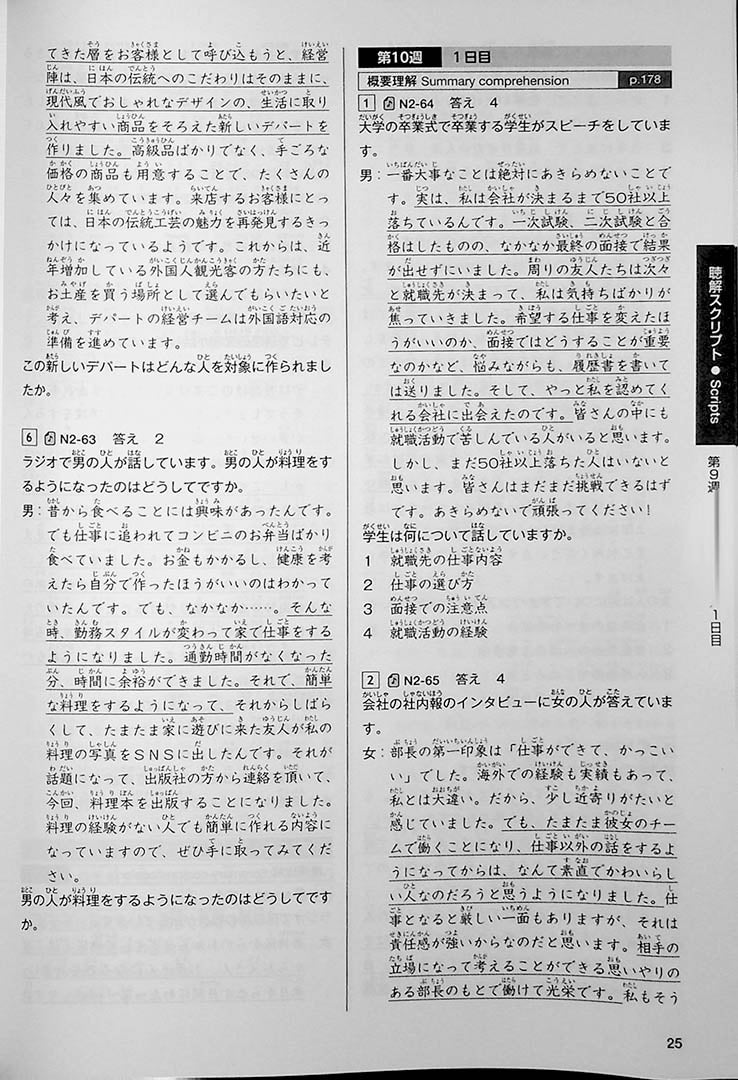 てきた層をお客様として呼び込もうと、経営
陣は、日本の伝統へのこだわりはそのままに、
現代風でおしゃれなデザインの、生活に取り
入れやすい商品をそろえた新しいデパートを
作りました。高級品ばかりでなく、手ごろな
価格の商品も用意することで、たくさんの
人々を集めています。来店するお客様にとっ
ては、日本の伝統工芸の魅力を再発見するきっ
かけになっているようです。これからは、近
年増加している外国人観光客の方たちにも、
お土産を買う場所として選んでもらいたいと
考え、デパートの経営チームは外国語対応の
準備を進めています。
この新しいデパートはどんな人を対象に作られまし
たか。
6 N2-63 答え 2
ラジオで男の人が話しています。男の人が料理をす
るようになったのはどうしてですか。
男：昔から食べることには興味があったんです。
でも仕事に追われてコンビニのお弁当ばかり
食べていました。お金もかかるし、健康を考
えたら自分で作ったほうがいいのはわかって
いたんです。でも、なかなか……。そんな
時、勤務スタイルが変わって家で仕事をする
ようになりました。通勤時間がなくなった
分、時間に余裕ができました。それで、簡単
な料理をするようになって、それからしばら
くして、たまたま家に遊びに来た友人が私の
料理の写真をSNSに出したんです。それが
話題になって、出版社の方から連絡を頂いて、
今回、料理本を出版することになりました。
料理の経験がない人でも簡単に作れる内容に
なっていますので、ぜひ手に取ってみてくだ
さい。
男の人が料理をするようになったのはどうしてです
か。
第10週 1日目
概要理解 Summary comprehension p.178
1 N2-64 答え 4
大学の卒業式で卒業する学生がスピーチをしていま
す。
男：一番大事なことは絶対にあきらめないことで
す。実は、私は会社が決まるまで50社以上
落ちているんです。一次試験、二次試験と合
格はしたものの、なかなか最終の面接で結果
が出せずにいました。周りの友人たちは次々
と就職先が決まって、私は気持ちばかりが
焦っていきました。希望する仕事を変えたほ
うがいいのか、面接ではどうすることが重要
なのかなど、悩みながらも、履歴書を書いて
は送りました。そして、やっと私を認めてく
れる会社に出会えたのです。皆さんの中にも
就職活動で苦しんでいる人がいると思います。
しかし、まだ50社以上落ちた人はいないと
思います。皆さんはまだまだ挑戦できるはず
です。あきらめないで頑張ってください！
学生は何について話していますか。
1 就職先の仕事内容
2 仕事の選び方
3 面接での注意点
4 就職活動の経験
2 N2-65 答え 4
会社の社内報のインタビューに女の人が答えていま
す。
女：部長の第一印象は「仕事ができて、かっこい
い」でした。海外での経験も実績もあって、
私とは大違い。だから、少し近寄りがたいと
感じていました。でも、たまたま彼女のチー
ムで働くことになり、仕事以外の話をするよ
うになってからは、なんて素直でかわいらし
い人なのだろうと思うようになりました。仕
事となると厳しい一面もありますが、それは
責任感が強いからなのだと思います。相手の
立場になって考えることができる思いやりの
ある部長のもとで働けて光栄です。私もそう
聴解スクリプト ● Scripts
第9週
1日目
25